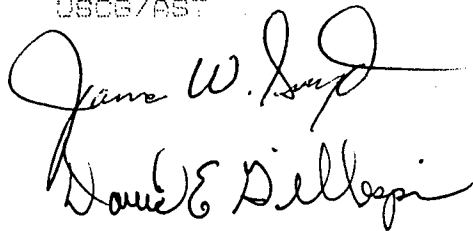 USCG/AST
James W.
David E Gillespie